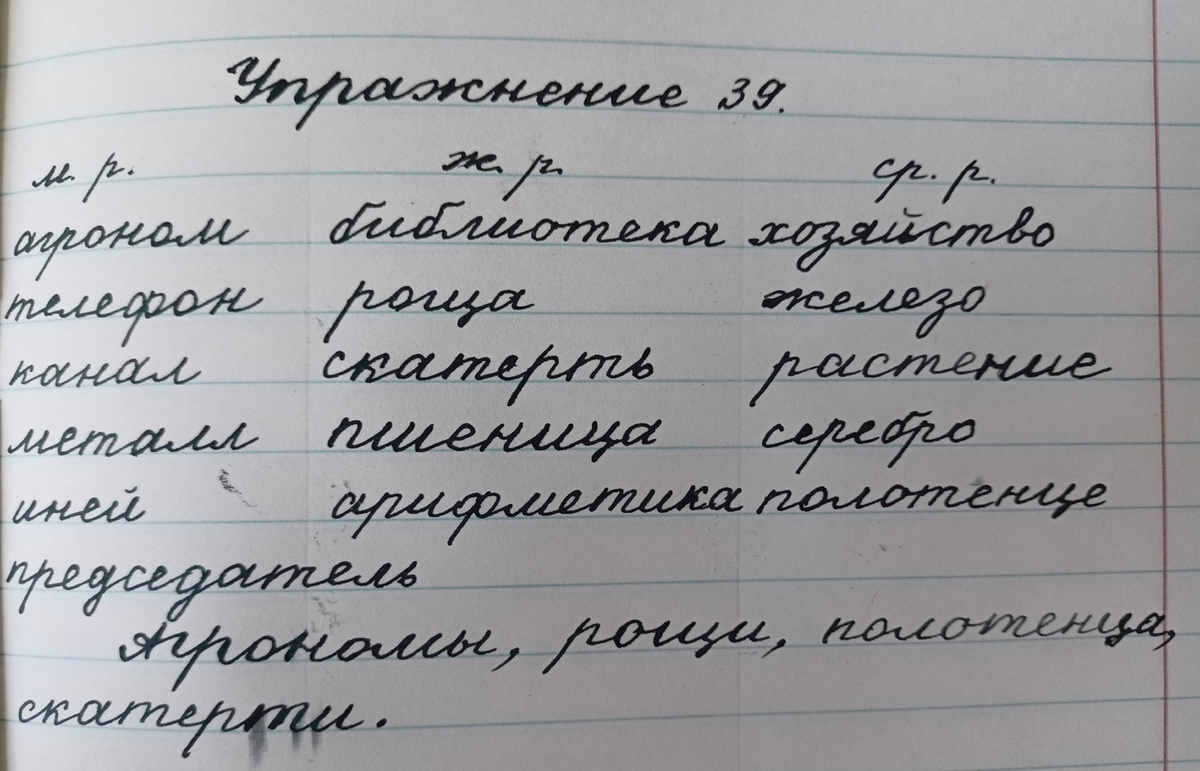 Упражнение 39.
м. р. ж. р. ср. р.
агроном библиотека хозяйство
телефон роща железо
канал скатерть растение
металл пшеница серебро
иней арифметика полотенце
председатель
Агрономы, рощи, полотенца,
скатерти.